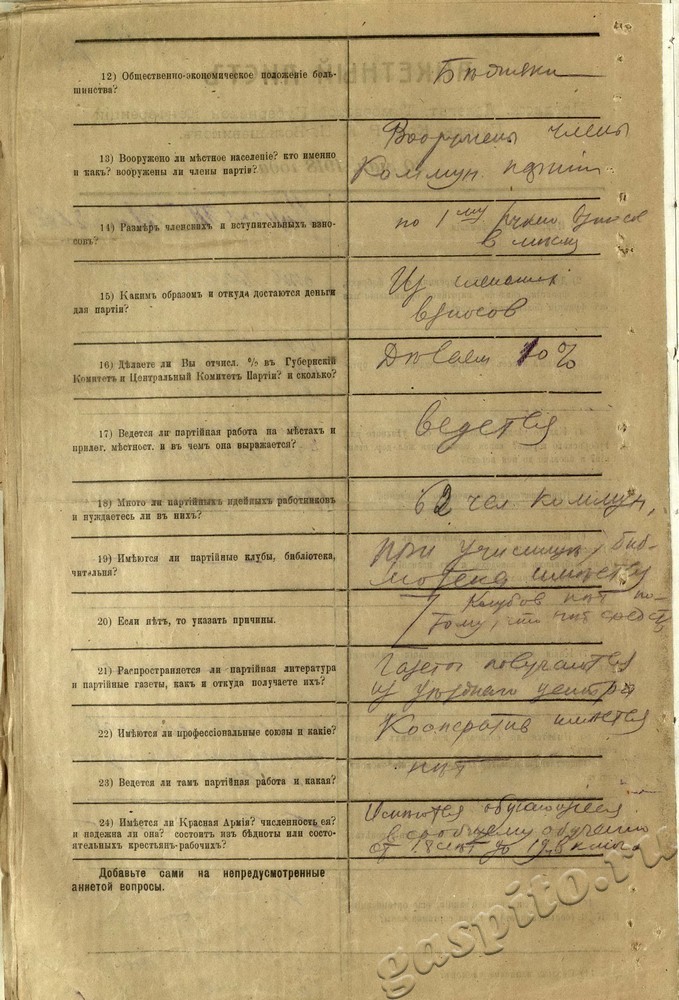 12) Общественно-экономическое положеніе боль-
шинства?
Бѣдняки
13) Вооружено ли мѣстное населеніе? кто именно
и какъ? вооружены ли члены партіи?
Вооружены члены
Коммун. партіи
14) Размѣръ членскихъ и вступительныхъ взно-
совъ?
по 1му рублю взносов
в месяц
15) Какимъ образомъ и откуда достаются деньги
для партіи?
Из членских
взносов
16) Дѣлаете ли Вы отчисл. % въ Губернскій
Комитетъ и Центральный Комитетъ Партіи? и сколько?
Дѣлаем 10%
17) Ведется ли партійная работа на мѣстахъ и
прилег. мѣстност. и въ чемъ она выражается?
ведется
18) Много ли партійныхъ идейныхъ работниковъ
и нуждаетесь ли въ нихъ?
62 чел. коммун,
19) Имѣются ли партійные клубы, библіотека,
читальня?
при училищѣ биб-
лиотека имѣется
20) Если нѣтъ, то указать причины.
Клубов нѣт по-
тому, что нѣт средств
21) Распространяется ли партійная литература
и партійные газеты, какъ и откуда получаете ихъ?
Газеты получаются
из уѣзднаго центра
22) Имѣются ли профессіональные союзы и какіе?
Кооператив имѣется
23) Ведется ли тамъ партійная работа и какая?
нѣт
24) Имѣется ли Красная Армія? численность ея?
и надежна ли она? состоитъ изъ бѣдноты или состо-
ятельныхъ крестьянъ-рабочихъ?
Имѣются обучающиеся
всеобщему обучению
от 18 лѣт до
Добавьте сами на непредусмотренные
анкетой вопросы.
gaspito.ru